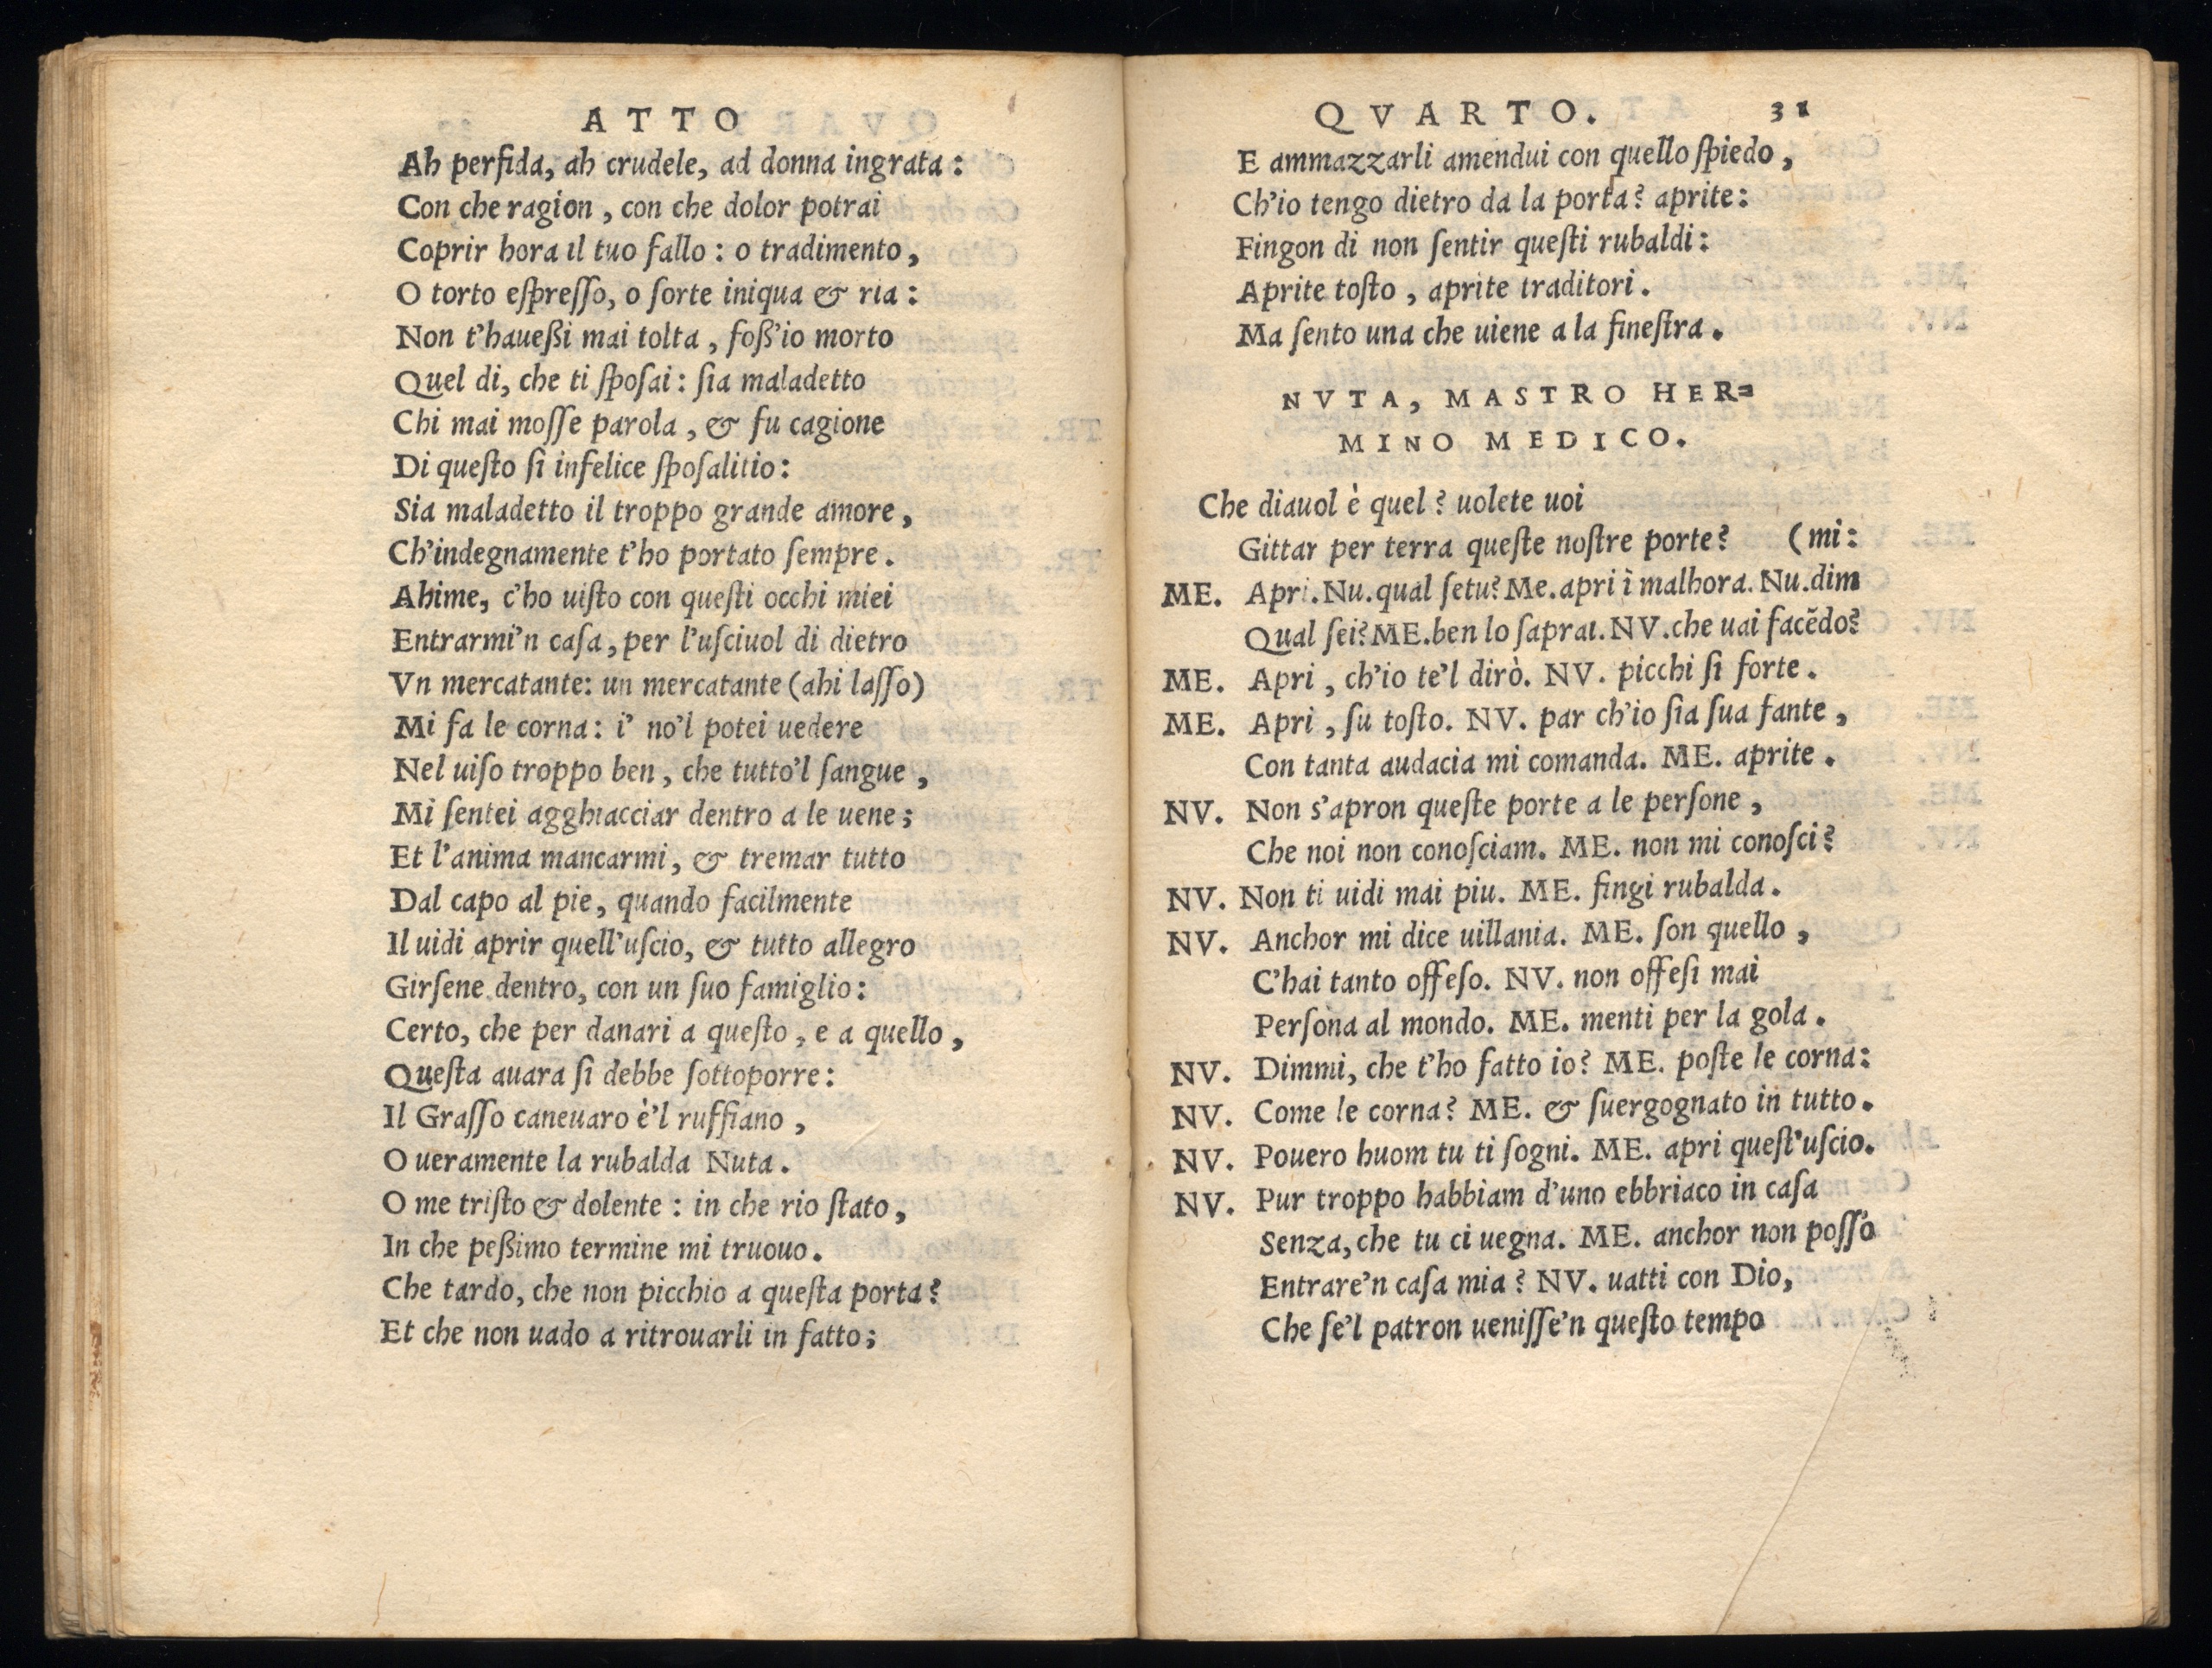 ATTO
Ah perfida, ah crudele, ad donna ingrata:
Con che ragion, con che dolor potrai
Coprir hora il tuo fallo: o tradimento,
O torto eſpreſſo, o ſorte iniqua & ria:
Non t'haueßi mai tolta, foß'io morto
Quel di, che ti ſpoſai: ſia maladetto
Chi mai moſſe parola, & fu cagione
Di queſto ſi infelice ſpoſalitio:
Sia maladetto il troppo grande amore,
Ch'indegnamente t'ho portato ſempre.
Ahime, c'ho uiſto con queſti occhi miei
Entrarmi'n caſa, per l'uſciuol di dietro
Vn mercatante: un mercatante (ahi laſſo)
Mi fa le corna: i' no'l potei uedere
Nel uiſo troppo ben, che tutto'l ſangue,
Mi ſentei agghiacciar dentro a le uene;
Et l'anima mancarmi, & tremar tutto
Dal capo al pie, quando facilmente
Il uidi aprir quell'uſcio, & tutto allegro
Girſene dentro, con un ſuo famiglio:
Certo, che per danari a queſto, e a quello,
Queſta auara ſi debbe ſottoporre:
Il Graſſo caneuaro è'l ruffiano,
O ueramente la rubalda Nuta.
O me triſto & dolente: in che rio ſtato,
In che peßimo termine mi truouo.
Che tardo, che non picchio a queſta porta?
Et che non uado a ritrouarli in fatto;
QVARTO. 31
E ammazzarli amendui con quello ſpiedo,
Ch'io tengo dietro da la porta? aprite:
Fingon di non ſentir queſti rubaldi:
Aprite toſto, aprite traditori.
Ma ſento una che uiene a la fineſtra.
NVTA, MASTRO HER=
MINO MEDICO.
Che diauol è quel? uolete uoi
Gittar per terra queſte noſtre porte? (mi:
ME. Apri. Nu. qual ſetu? Me. apri ī malhora. Nu. dim
Qual ſei? ME. ben lo ſaprai. NV. che uai facēdo?
ME. Apri, ch'io te'l dirò. NV. picchi ſi forte.
ME. Apri, ſu toſto. NV. par ch'io ſia ſua fante,
Con tanta audacia mi comanda. ME. aprite.
NV. Non s'apron queſte porte a le perſone,
Che noi non conoſciam. ME. non mi conoſci?
NV. Non ti uidi mai piu. ME. fingi rubalda.
NV. Anchor mi dice uillania. ME. ſon quello,
C'hai tanto offeſo. NV. non offeſi mai
Perſona al mondo. ME. menti per la gola.
NV. Dimmi, che t'ho fatto io? ME. poſte le corna:
NV. Come le corna? ME. & ſuergognato in tutto.
NV. Pouero huom tu ti ſogni. ME. apri queſt'uſcio.
NV. Pur troppo habbiam d'uno ebbriaco in caſa
Senza, che tu ci uegna. ME. anchor non poſſo
Entrare'n caſa mia? NV. uatti con Dio,
Che ſe'l patron ueniſſe'n queſto tempo